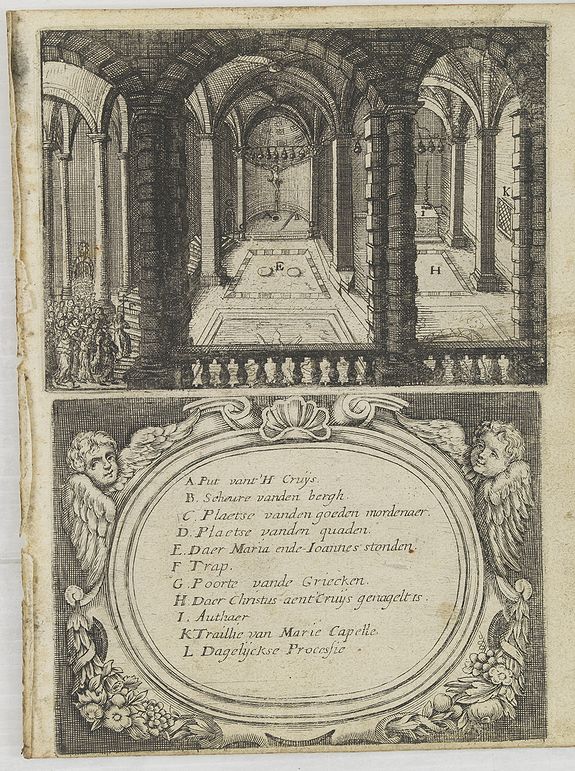 K
E
I
H
A Put vant'H Cruÿs.
B. Scheure vanden bergh.
C. Plaetse vanden goeden mordenaer.
D. Plaetse vanden quaden.
E. Daer Maria ende Ioannes stonden.
F Trap.
G. Poorte vande Griecken.
H. Daer Christus aent Cruijs genagelt is.
I. Authaer
K Traillie van Marie Capelle.
L Dagelÿckse Processie